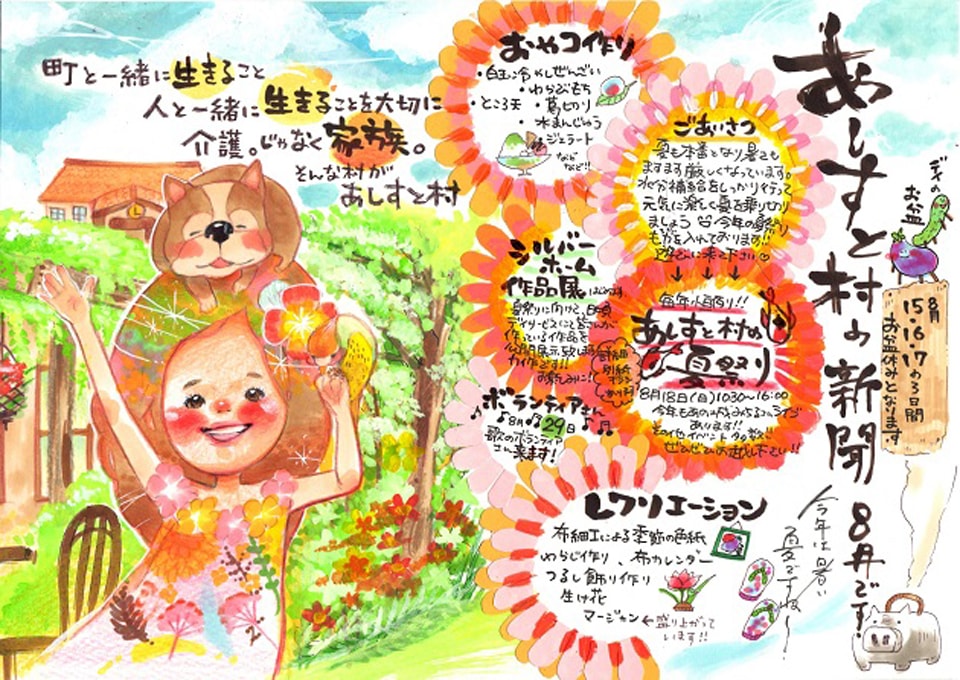 あしすと村の新聞 8月です!
今年は暑い
夏ですね~
デイのお盆
8月
15・16・17の3日間
お盆休みとなります
町と一緒に生きること
人と一緒に生きることを大切に
介護。じゃなく家族。
そんな村が
あしすと村
おやつ作り
・白玉冷やしぜんざい
・わらびもち
・ところ天 ・葛切り
・水まんじゅう
・ジェラート
などなど!!
ごあいさつ
夏も本番となり暑さも
ますます厳しくなっています。
水分補給をしっかり行って
元気に楽しく夏を乗り切り
ましょう 今年の夏祭り
も力を入れております!!
遊びに来て下さい♡
↓ ↓ ↓
シルバーホーム
作品展
夏祭りに向けて、日頃
デイサービスにて皆さんが
作っている作品を
公開展示致します
力作です!!
お楽しみに!
毎年恒例り!!
あしすと村の
夏祭り
8月18日(日)10:30~16:00
ライブ
あります!!
その他イベント多数で
ぜひぜひお越し下さい!!
詳細は
別紙チラシ
ボランティアさん
8月29日
歌のボランティア
さん来ます!
レクリエーション
布細工による季節の色紙
わらじ作り、布カレンダー
つるし飾り作り
生け花
マージャンも盛り上がって
います!!